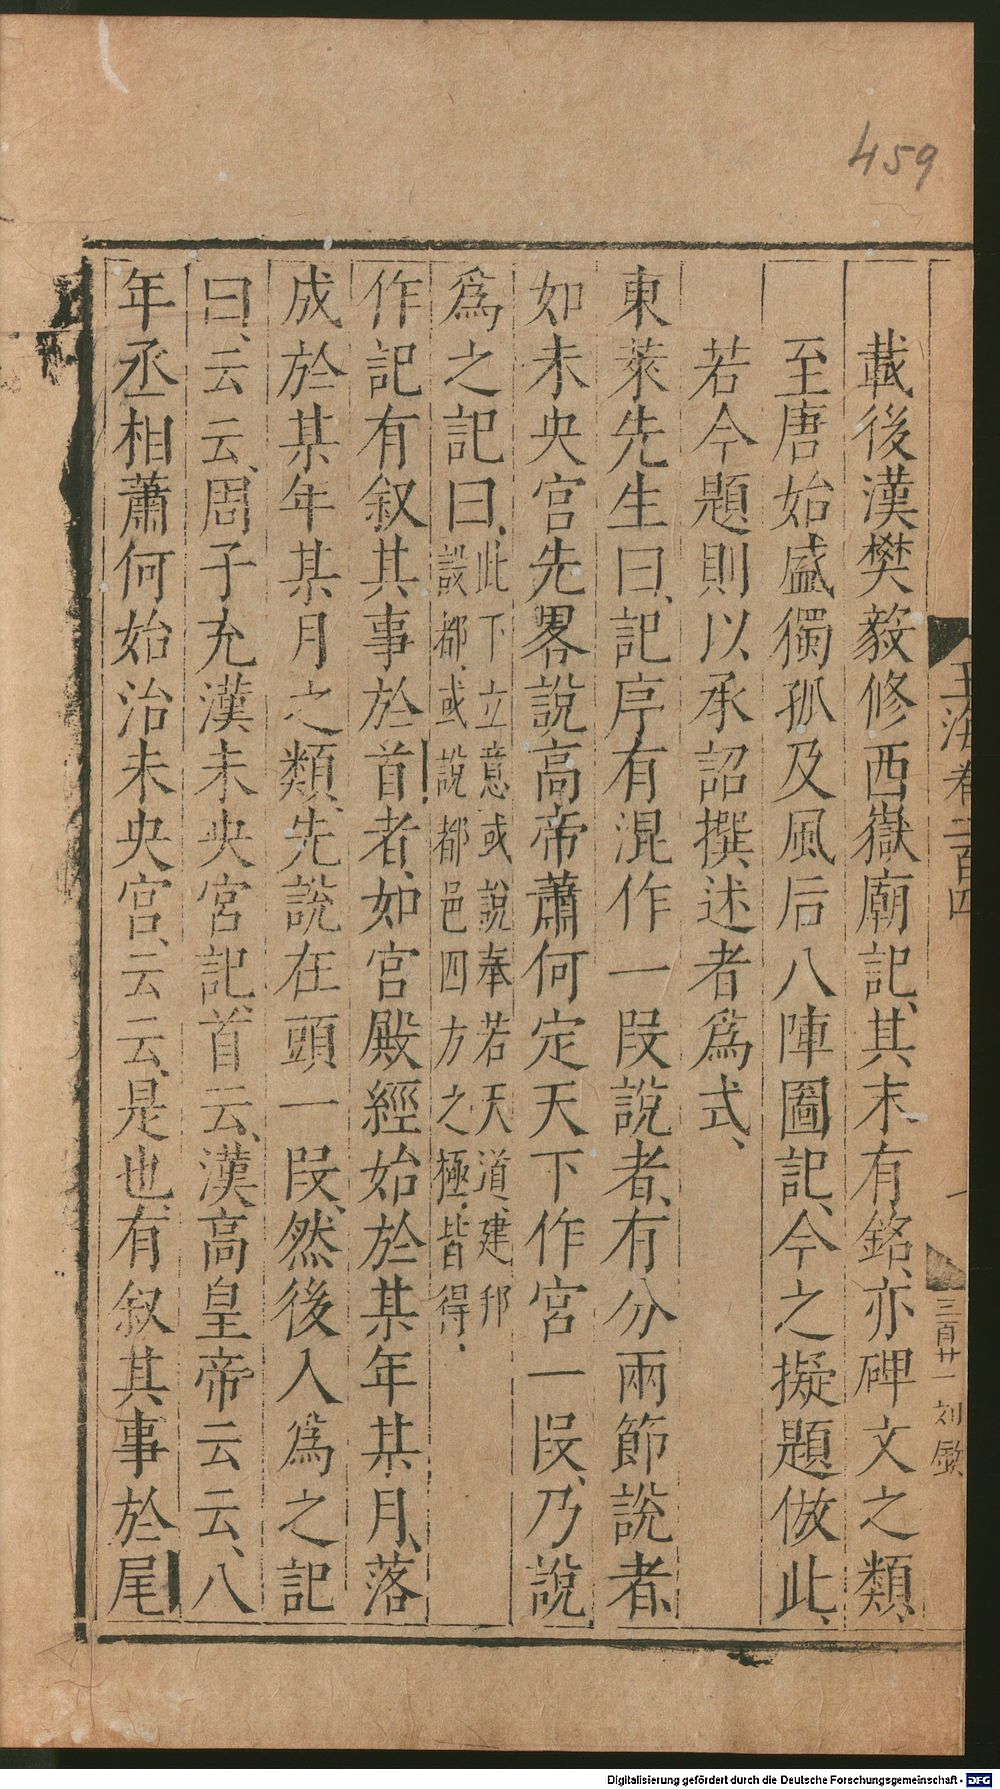 459
載後漢樊毅修西嶽廟記、其末有銘、亦碑文之類、
至唐始盛獨孤及風后八陣圖記、今之擬題倣此、
若今題則以承詔撰述者爲式、
東萊先生曰、記序有混作一段說者、有分兩節說者、
如未央宮先畧說高帝蕭何定天下作宮一段、乃說
爲之記曰、此下立意或說奉若天道、建邦設都、或說都邑四方之極、皆得、
作記有叙其事於首者、如宮殿經始於某年某月、落
成於某年某月之類、先說在頭一段、然後入爲之記
曰、云云、周子充漢未央宮記、首云、漢高皇帝云云、八
年丞相蕭何始治未央宮、云云、是也、有叙其事於尾
玉海卷二百四
三百廿一
Digitalisierung gefördert durch die Deutsche Forschungsgemeinschaft - DFG